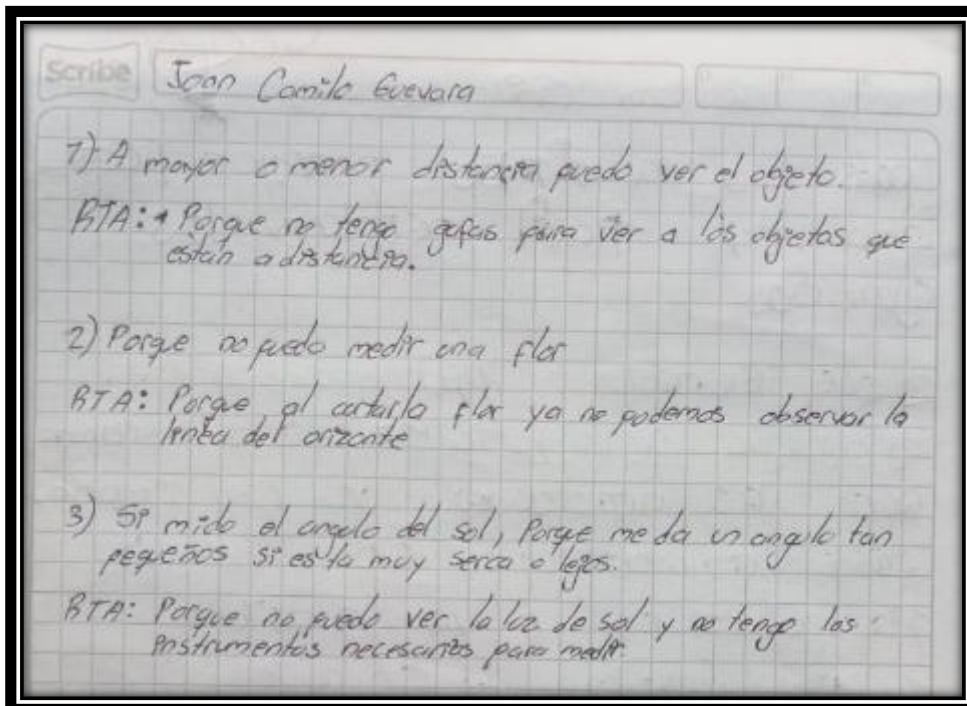 Scribe
Joan Camilo Guevara
1) A mayor o menor distancia puedo ver el objeto.
RTA: Porque no tengo gafas para ver a los objetos que
estan a distancia.
2) Porqe no puedo medir una flor
RTA: Porqe al cortar la flor ya no podemos observar la
linea del orizonte
3) Si mido el angulo del sol, Porqe me da un angulo tan
peqeños si esta muy serca o lejos.
RTA: Porque no puedo ver la luz de sol y no tengo los
instrumentos necesarios para medir.